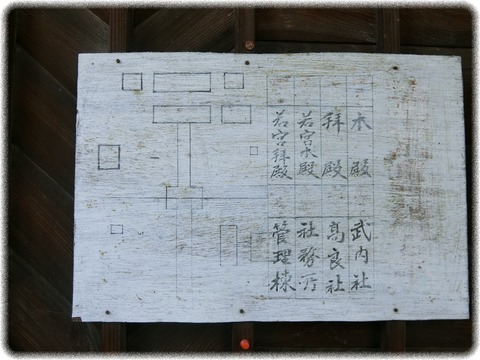 本殿
拝殿
若宮本殿
若宮拝殿
武内社
高良社
社務所
管理棟